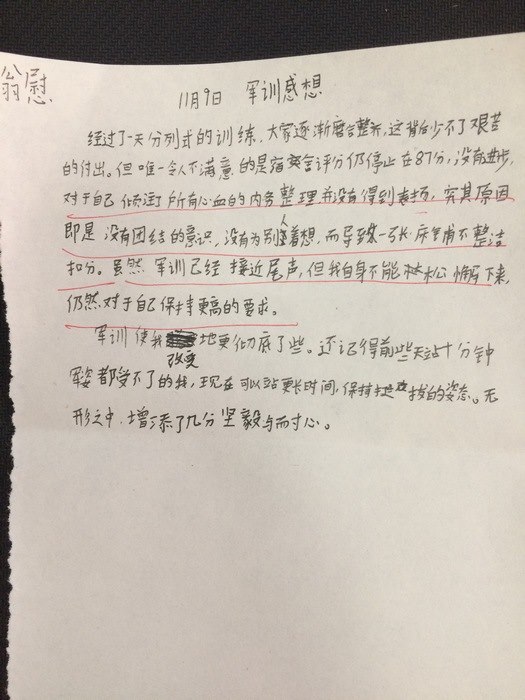 翁慰
11月9日 军训感想
经过了一天分列式的训练,大家逐渐磨合整齐,这背后少不了艰苦
的付出。但唯一令人不满意的是宿舍评分仍停止在87分,没有进步,
对于自己倾注了所有心血的内务整理并没有得到表扬,究其原因
即是没有团结的意识,没有为别人着想,而导致一张床铺不整洁
扣分。虽然军训已经接近尾声,但我自身不能松懈下来,
仍然对于自己保持更高的要求。
军训使我改变地更彻底了些。还记得前些天站十分钟
军姿都受不了的我,现在可以站更长时间,保持挺拔的姿态。无
形之中,增添了几分坚毅与耐心。